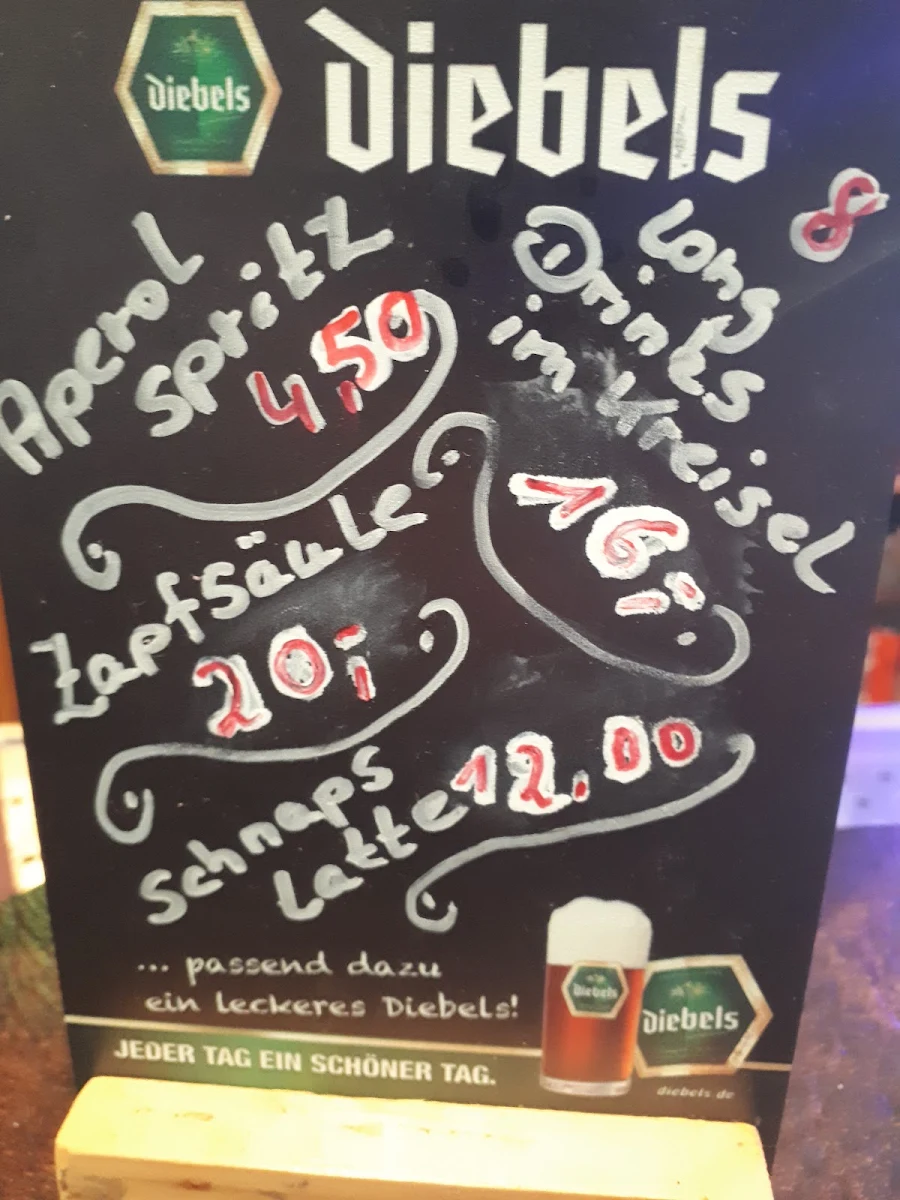 diebels
diebels
Aperol
Spritz
4,50
8
Long
Drinks
im Kreisel
16,-
Zapfsäule
20,-
Schnaps
Latte
12.00
... passend dazu
ein leckeres Diebels!
JEDER TAG EIN SCHÖNER TAG.
diebels
diebels
diebels.de